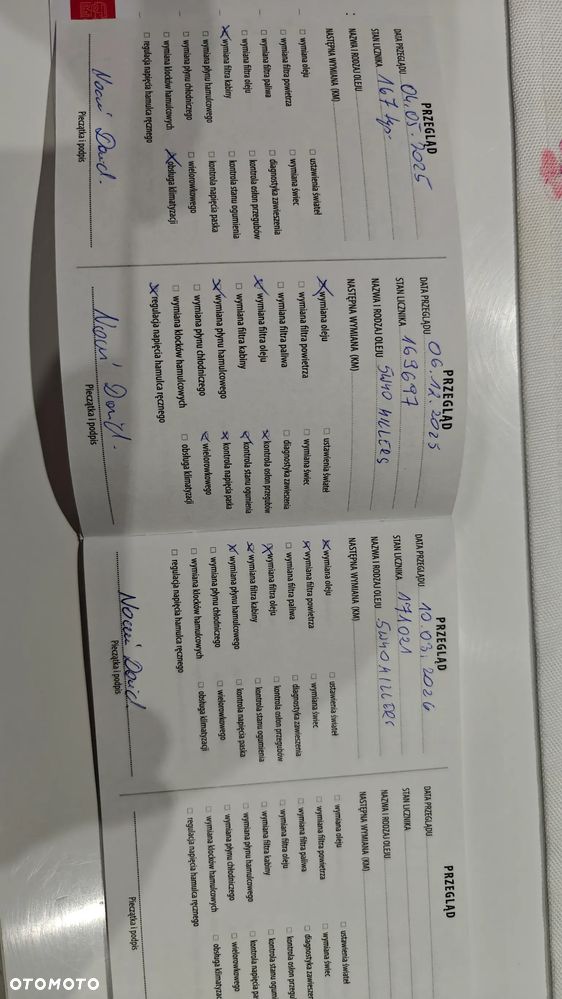 PRZEGLĄD
DATA PRZEGLĄDU 04.05.2025
STAN LICZNIKA 167 tyś.
NAZWA I RODZAJ OLEJU
NASTĘPNA WYMIANA (KM)
□ wymiana oleju
□ wymiana filtra powietrza
□ wymiana filtra paliwa
□ wymiana filtru oleju
☒ wymiana filtra kabiny
□ wymiana płynu hamulcowego
□ wymiana płynu chłodniczego
□ wymiana klocków hamulcowych
□ regulacja napięcia hamulca ręcznego
□ ustawienia świateł
□ wymiana świec
□ diagnostyka zawieszenia
□ kontrola osłon przegubów
□ kontrola stanu ogumienia
□ kontrola napięcia paska
□ wielorowkowego
☒ obsługa klimatyzacji
Pieczątka i podpis
PRZEGLĄD
DATA PRZEGLĄDU 06.12.2025
STAN LICZNIKA 169697
NAZWA I RODZAJ OLEJU 5W40 MILLERS
NASTĘPNA WYMIANA (KM)
☒ wymiana oleju
□ wymiana filtra powietrza
□ wymiana filtra paliwa
☒ wymiana filtru oleju
□ wymiana filtra kabiny
☒ wymiana płynu hamulcowego
□ wymiana płynu chłodniczego
□ wymiana klocków hamulcowych
☒ regulacja napięcia hamulca ręcznego
□ ustawienia świateł
□ wymiana świec
□ diagnostyka zawieszenia
☒ kontrola osłon przegubów
☒ kontrola stanu ogumienia
☒ kontrola napięcia paska
☒ wielorowkowego
□ obsługa klimatyzacji
Pieczątka i podpis
PRZEGLĄD
DATA PRZEGLĄDU 10.03.2026
STAN LICZNIKA 171021
NAZWA I RODZAJ OLEJU 5W40 MILLERS
NASTĘPNA WYMIANA (KM)
☒ wymiana oleju
☒ wymiana filtra powietrza
□ wymiana filtra paliwa
☒ wymiana filtru oleju
☒ wymiana filtra kabiny
☒ wymiana płynu hamulcowego
□ wymiana płynu chłodniczego
□ wymiana klocków hamulcowych
□ regulacja napięcia hamulca ręcznego
□ ustawienia świateł
□ wymiana świec
□ diagnostyka zawieszenia
□ kontrola osłon przegubów
□ kontrola stanu ogumienia
□ kontrola napięcia paska
□ wielorowkowego
□ obsługa klimatyzacji
Pieczątka i podpis
PRZEGLĄD
DATA PRZEGLĄDU
STAN LICZNIKA
NAZWA I RODZAJ OLEJU
NASTĘPNA WYMIANA (KM)
□ wymiana oleju
□ wymiana filtra powietrza
□ wymiana filtra paliwa
□ wymiana filtru oleju
□ wymiana filtra kabiny
□ wymiana płynu hamulcowego
□ wymiana płynu chłodniczego
□ wymiana klocków hamulcowych
□ regulacja napięcia hamulca ręcznego
□ ustawienia świateł
□ wymiana świec
□ diagnostyka zawieszenia
□ kontrola osłon przegu
□ kontrola stanu ogumien
□ kontrola napięcia pa
□ wielorowkowego
□ obsługa klimatyzac
Pieczątka i podpis
OTOMOTO